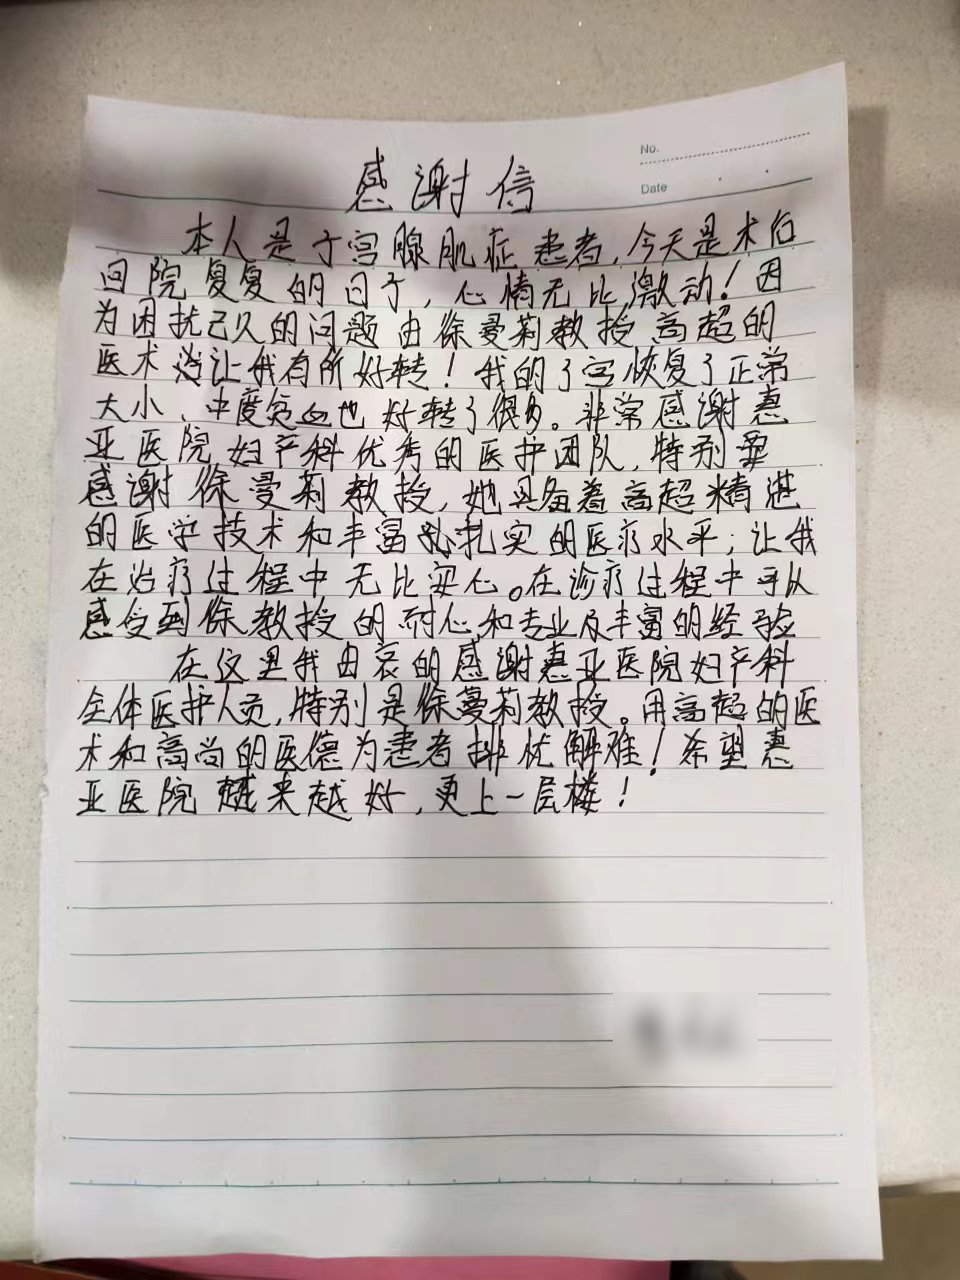 No.
Date
感谢信
本人是子宫腺肌症患者,今天是术后
回院复复的日子,心情无比激动!因
为困扰已久的问题由徐曼莉教授高超的
医术 让我有所好转!我的子宫恢复了正常
大小、中度贫血也好转了很多。非常感谢惠
亚医院妇产科优秀的医护团队,特别要
感谢徐曼莉教授,她具备着高超精湛
的医学技术和丰富 扎实的医疗水平;让我
在治疗过程中无比安心。在诊疗过程中可以
感受到徐教授的耐心和专业及丰富的经验
在这里我由衷的感谢惠亚医院妇产科
全体医护人员,特别是徐蔓莉教授。用高超的医
术和高尚的医德为患者排忧解难!希望惠
亚医院越来越好,更上一层楼!